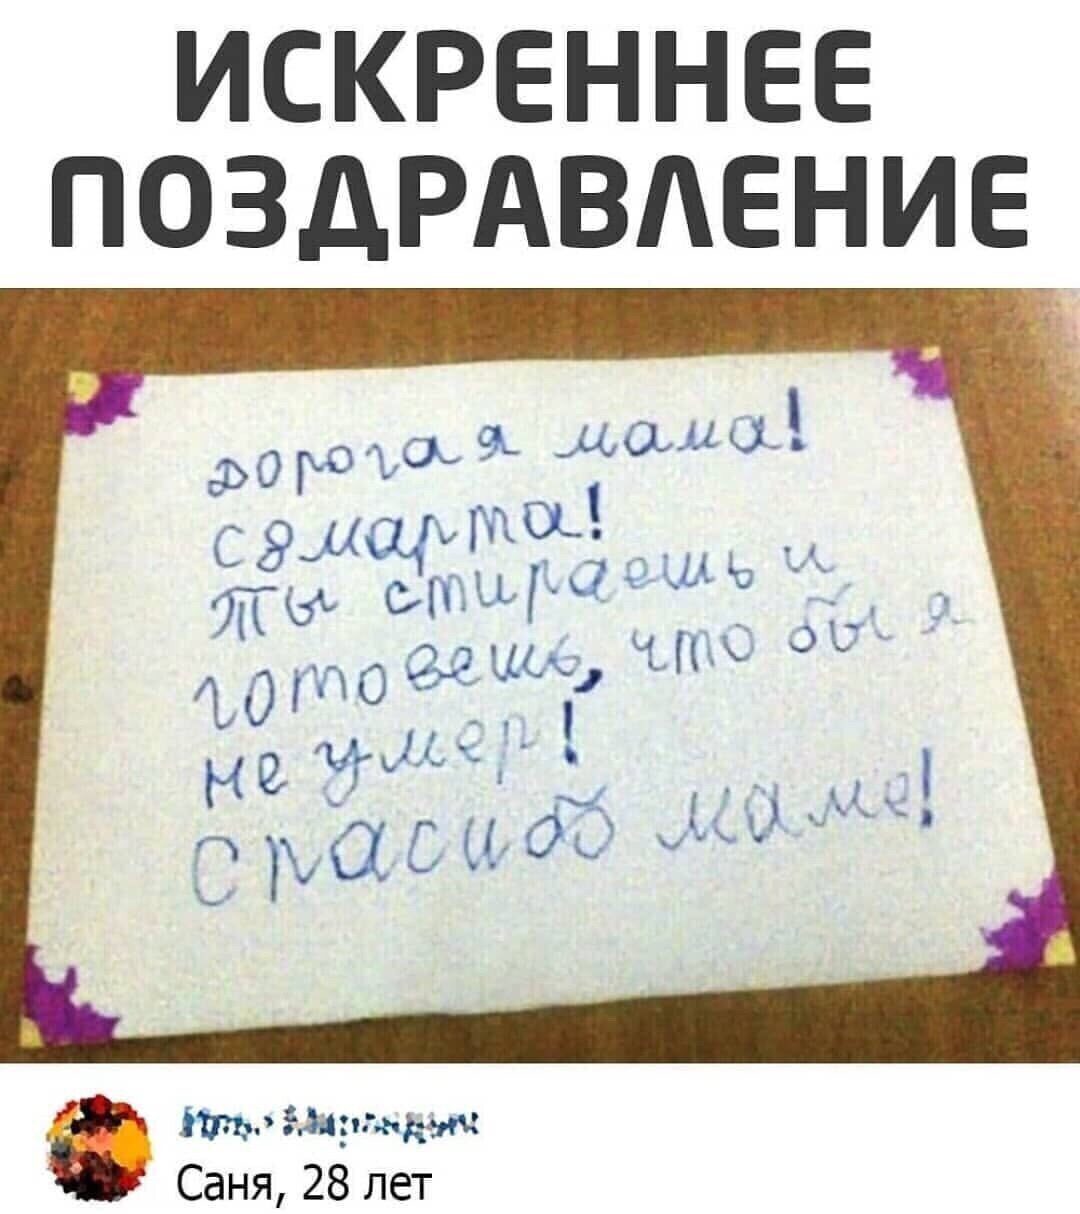 ИСКРЕННЕЕ
ПОЗДРАВЛЕНИЕ
дорогая мама!
с 8 марта!
Ты стираешь и
готовешь, что бы я
не умер!
Спасибо маме!
Саня, 28 лет